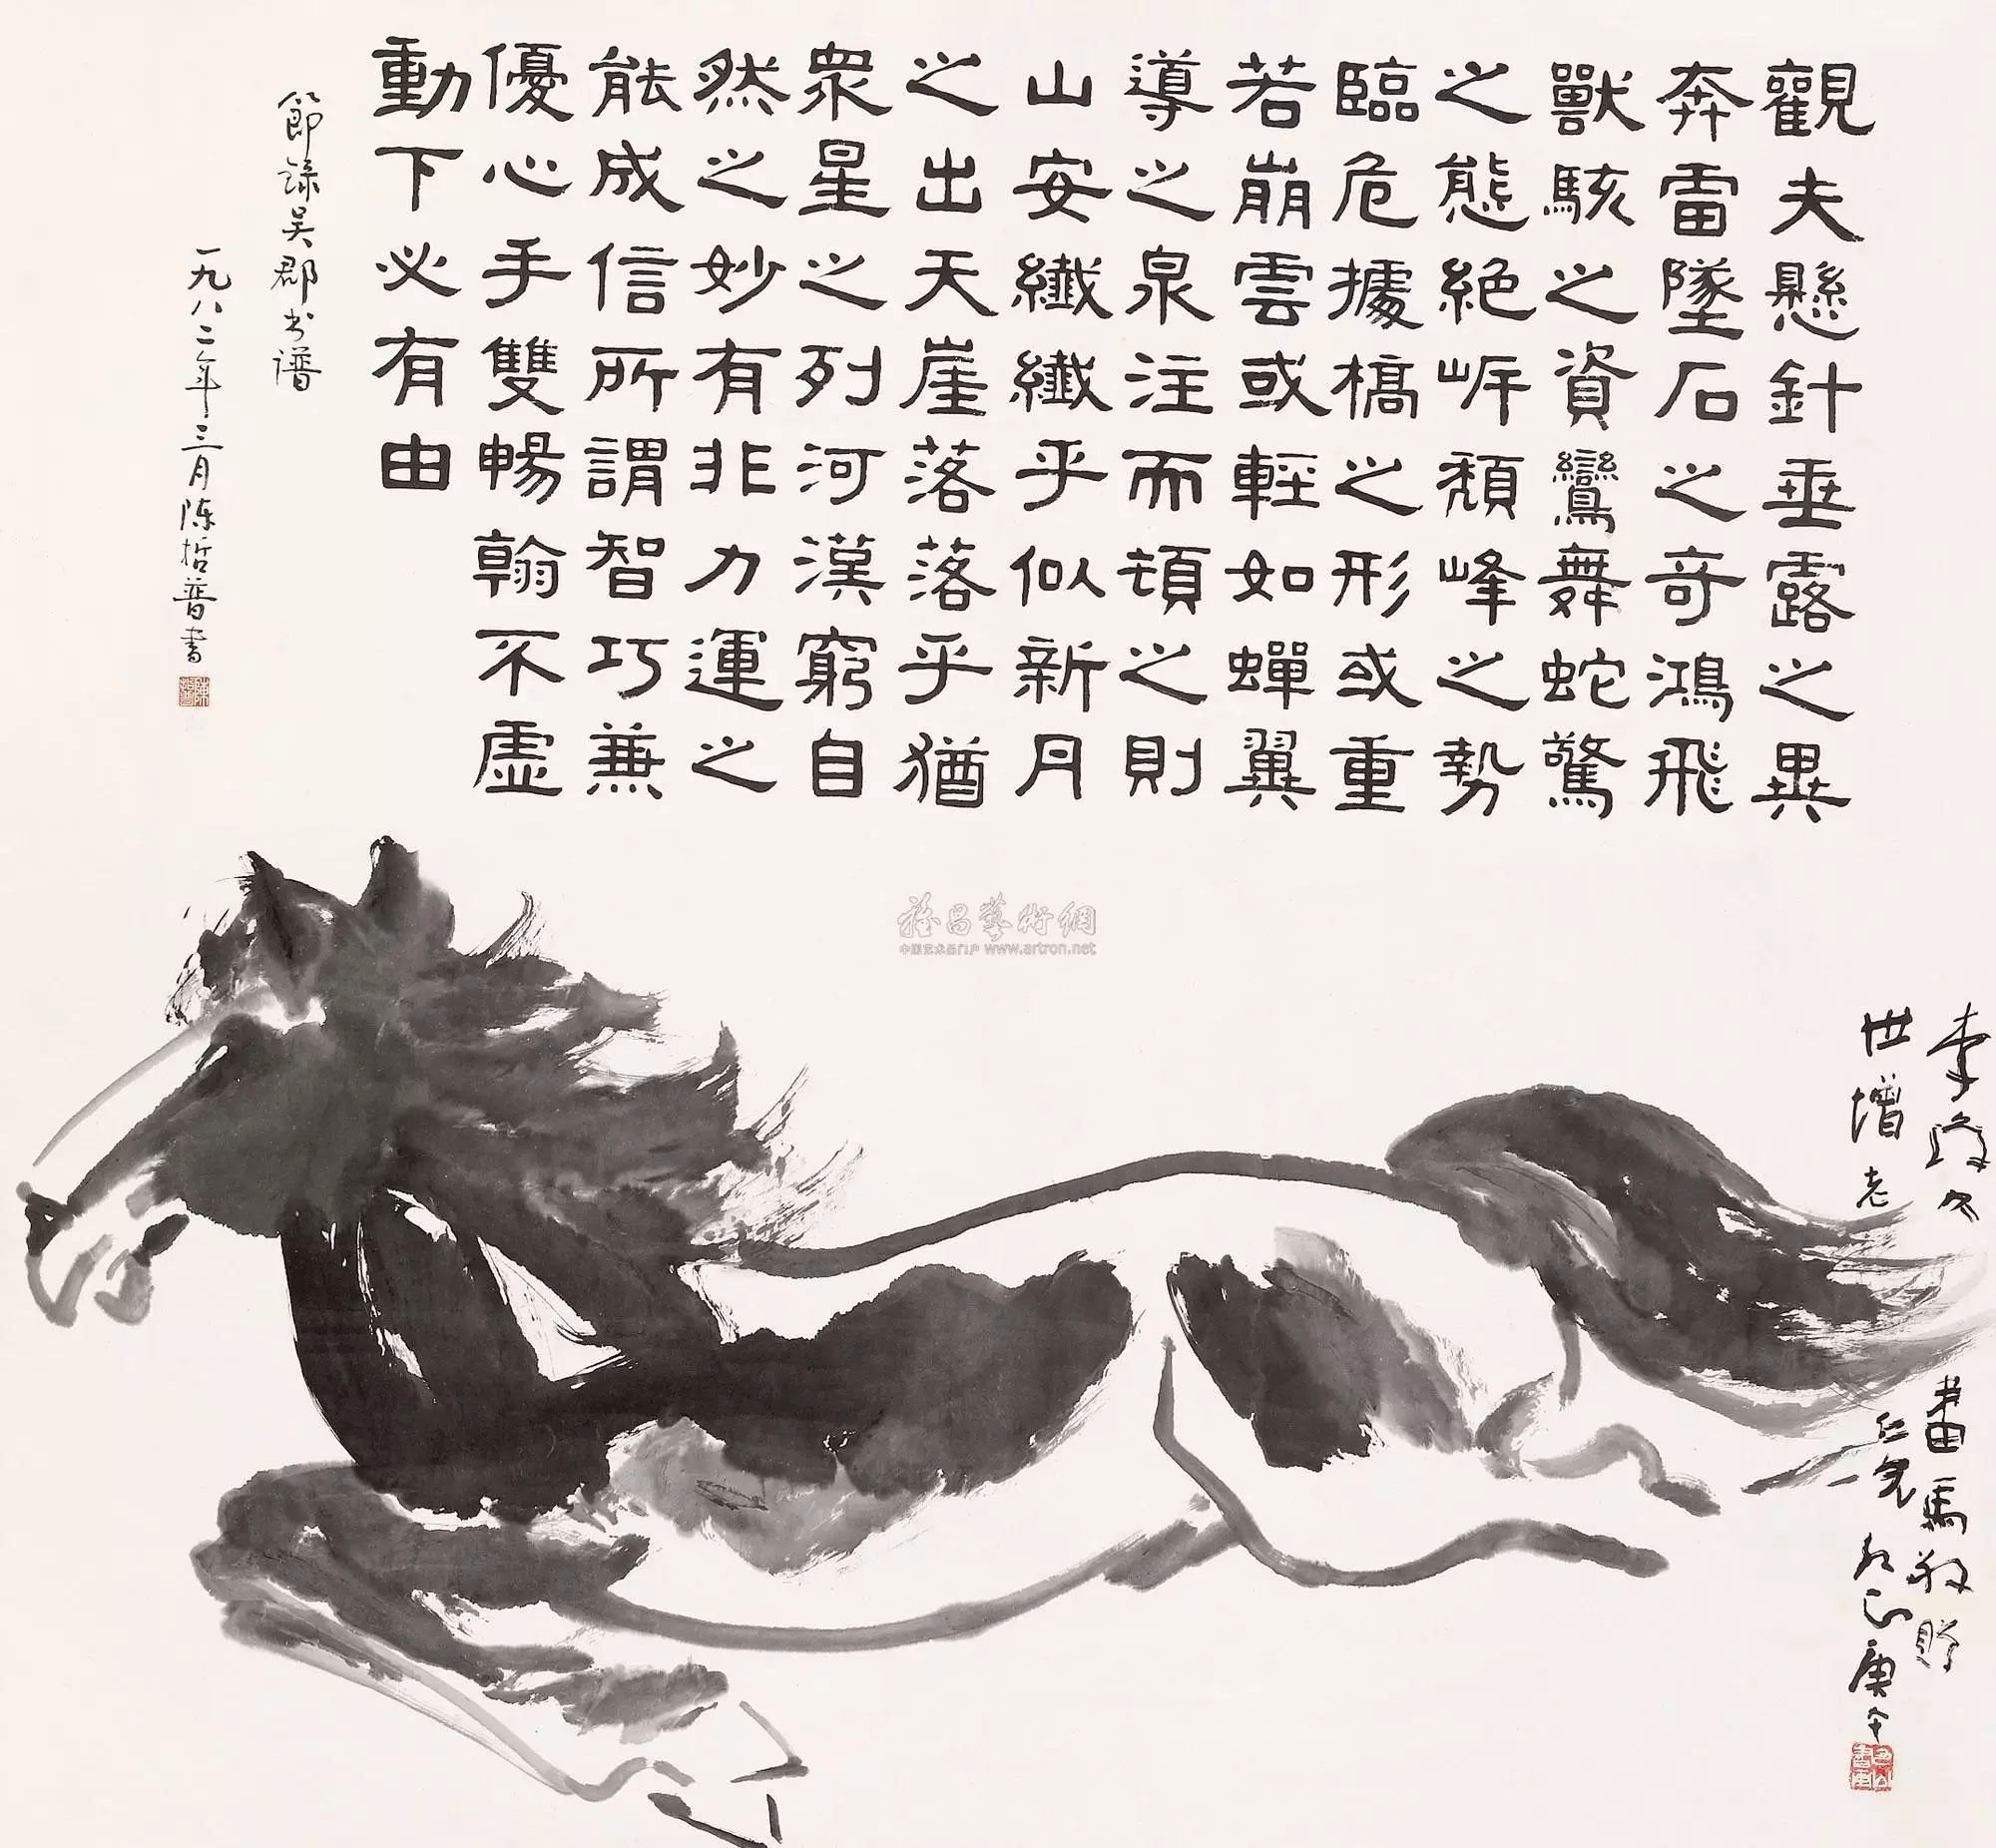 觀夫懸針垂露之異
奔雷墜石之奇鴻飛
獸駭之資鸞舞蛇驚
之態絕岸頹峰之勢
臨危據槁之形或重
若崩雲或輕如蟬翼
導之泉注而頓之則
山安纖纖乎似新月
之出天崖落落乎猶
眾星之列河漢窮自
然之妙有非力運之
能成信所謂智巧兼
優心手雙暢翰不虛
動下必有由
節錄吴郡书谱
一九八二年三月陈哲普書
畫馬敬贈
世增老
仁兄
庚午
中国艺术品门户 www.artron.net